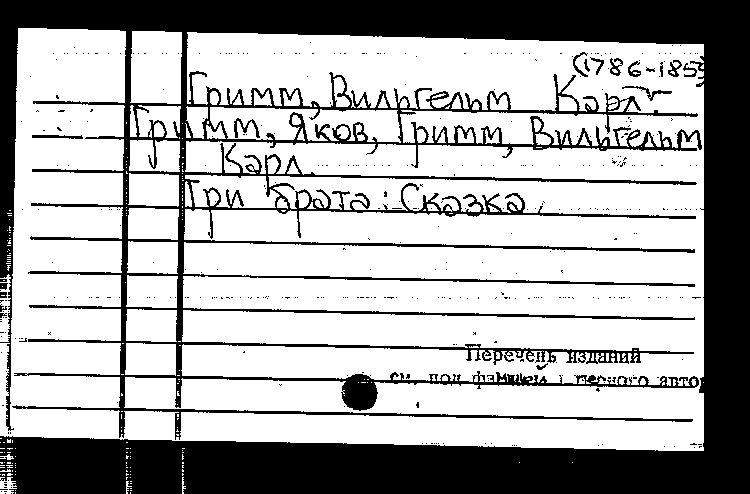 (1786-185
Гримм, Вильгельм Карл.
Гримм, Яков, Гримм, Вильгельм
Карл.
Три брата: Сказка.
Перечень изданий
см. под фамилией первого авто